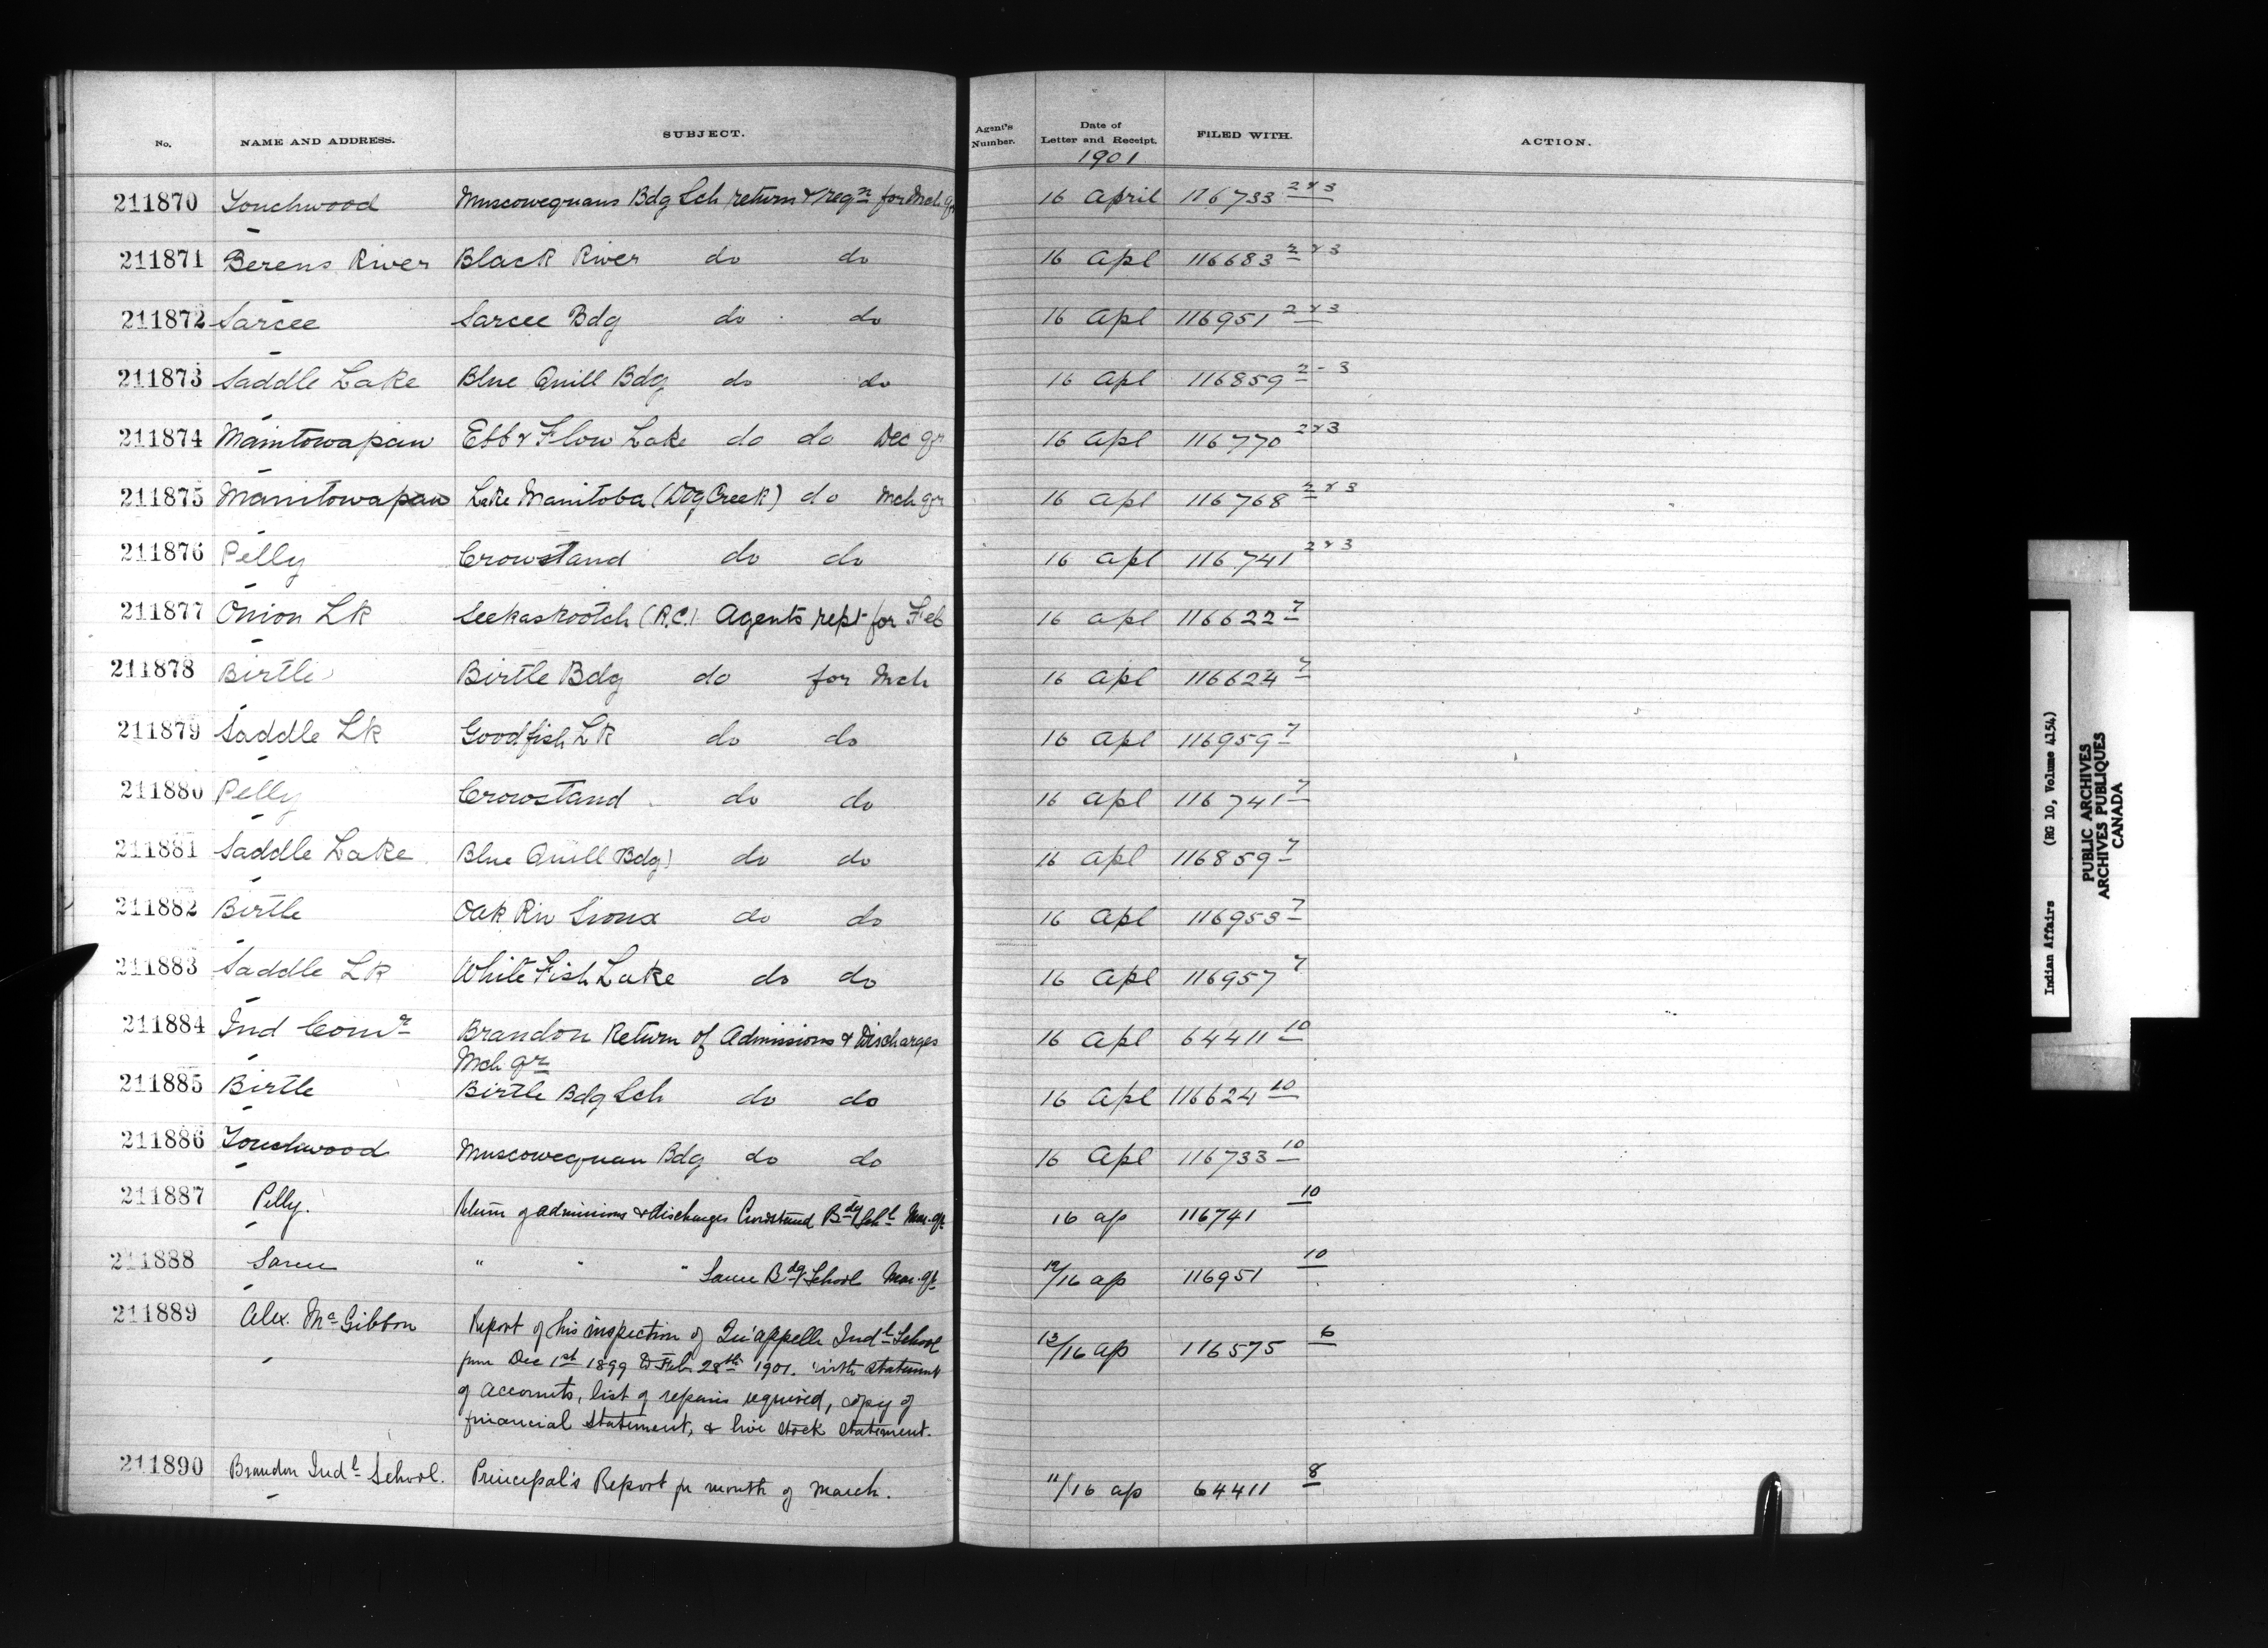 No. NAME AND ADDRESS. SUBJECT. Agent's Number. Date of Letter and Receipt. FILED WITH. ACTION.
1901
211870 Touchwood Muscowequans Bdg Sch return & reqn for Mch qr 16 April 116733 2&3
211871 Berens River Black River do do 16 Apl 116683 2&3
211872 Sarcee Sarcee Bdg do do 16 Apl 116951 2&3
211873 Saddle Lake Blue Quill Bdg do do 16 Apl 116859 2-3
211874 Manitowapan Ebb & Flow Lake do do Dec qr 16 Apl 116770 2&3
211875 Manitowapan Lake Manitoba (Dog Creek) do Mch qr 16 Apl 116768 2&3
211876 Pelly Crowstand do do 16 Apl 116741 2&3
211877 Onion Lk Seekaskootch (R.C.) Agents rept for Feb 16 Apl 116622 7
211878 Birtle Birtle Bdg do for Mch 16 Apl 116624 7
211879 Saddle Lk Goodfish Lk do do 16 Apl 116959 7
211880 Pelly Crowstand do do 16 Apl 116741 7
211881 Saddle Lake Blue Quill Bdg do do 16 Apl 116859 7
211882 Birtle Oak Riv Sioux do do 16 Apl 116953 7
211883 Saddle Lk White Fish Lake do do 16 Apl 116957 7
211884 Ind Comr Brandon Return of Admissions & Discharges 16 Apl 64411 10
Mch qr
211885 Birtle Birtle Bdg Sch do do 16 Apl 116624 10
211886 Touchwood Muscowequan Bdg do do 16 Apl 116733 10
211887 Pelly. Return of admissions & discharges Crowstand Bdg Schl Mar. qr 16 ap 116741 10
211888 Sarcee " " " Sarcee Bdg School Mar. qr 12/16 ap 116951 10
211889 Alex. McGibbon Report of his inspection of Qu'appelle Indl School 13/16 ap 116575 6
from Dec 1st 1899 to Feb 28th 1901. with statement
of accounts, list of repairs required, copy of
financial statement, & live stock statement.
211890 Brandon Indl School. Principal's Report for month of March. 11/16 ap 64411 8
Indian Affairs (RG 10, Volume 4154)
PUBLIC ARCHIVES
ARCHIVES PUBLIQUES
CANADA